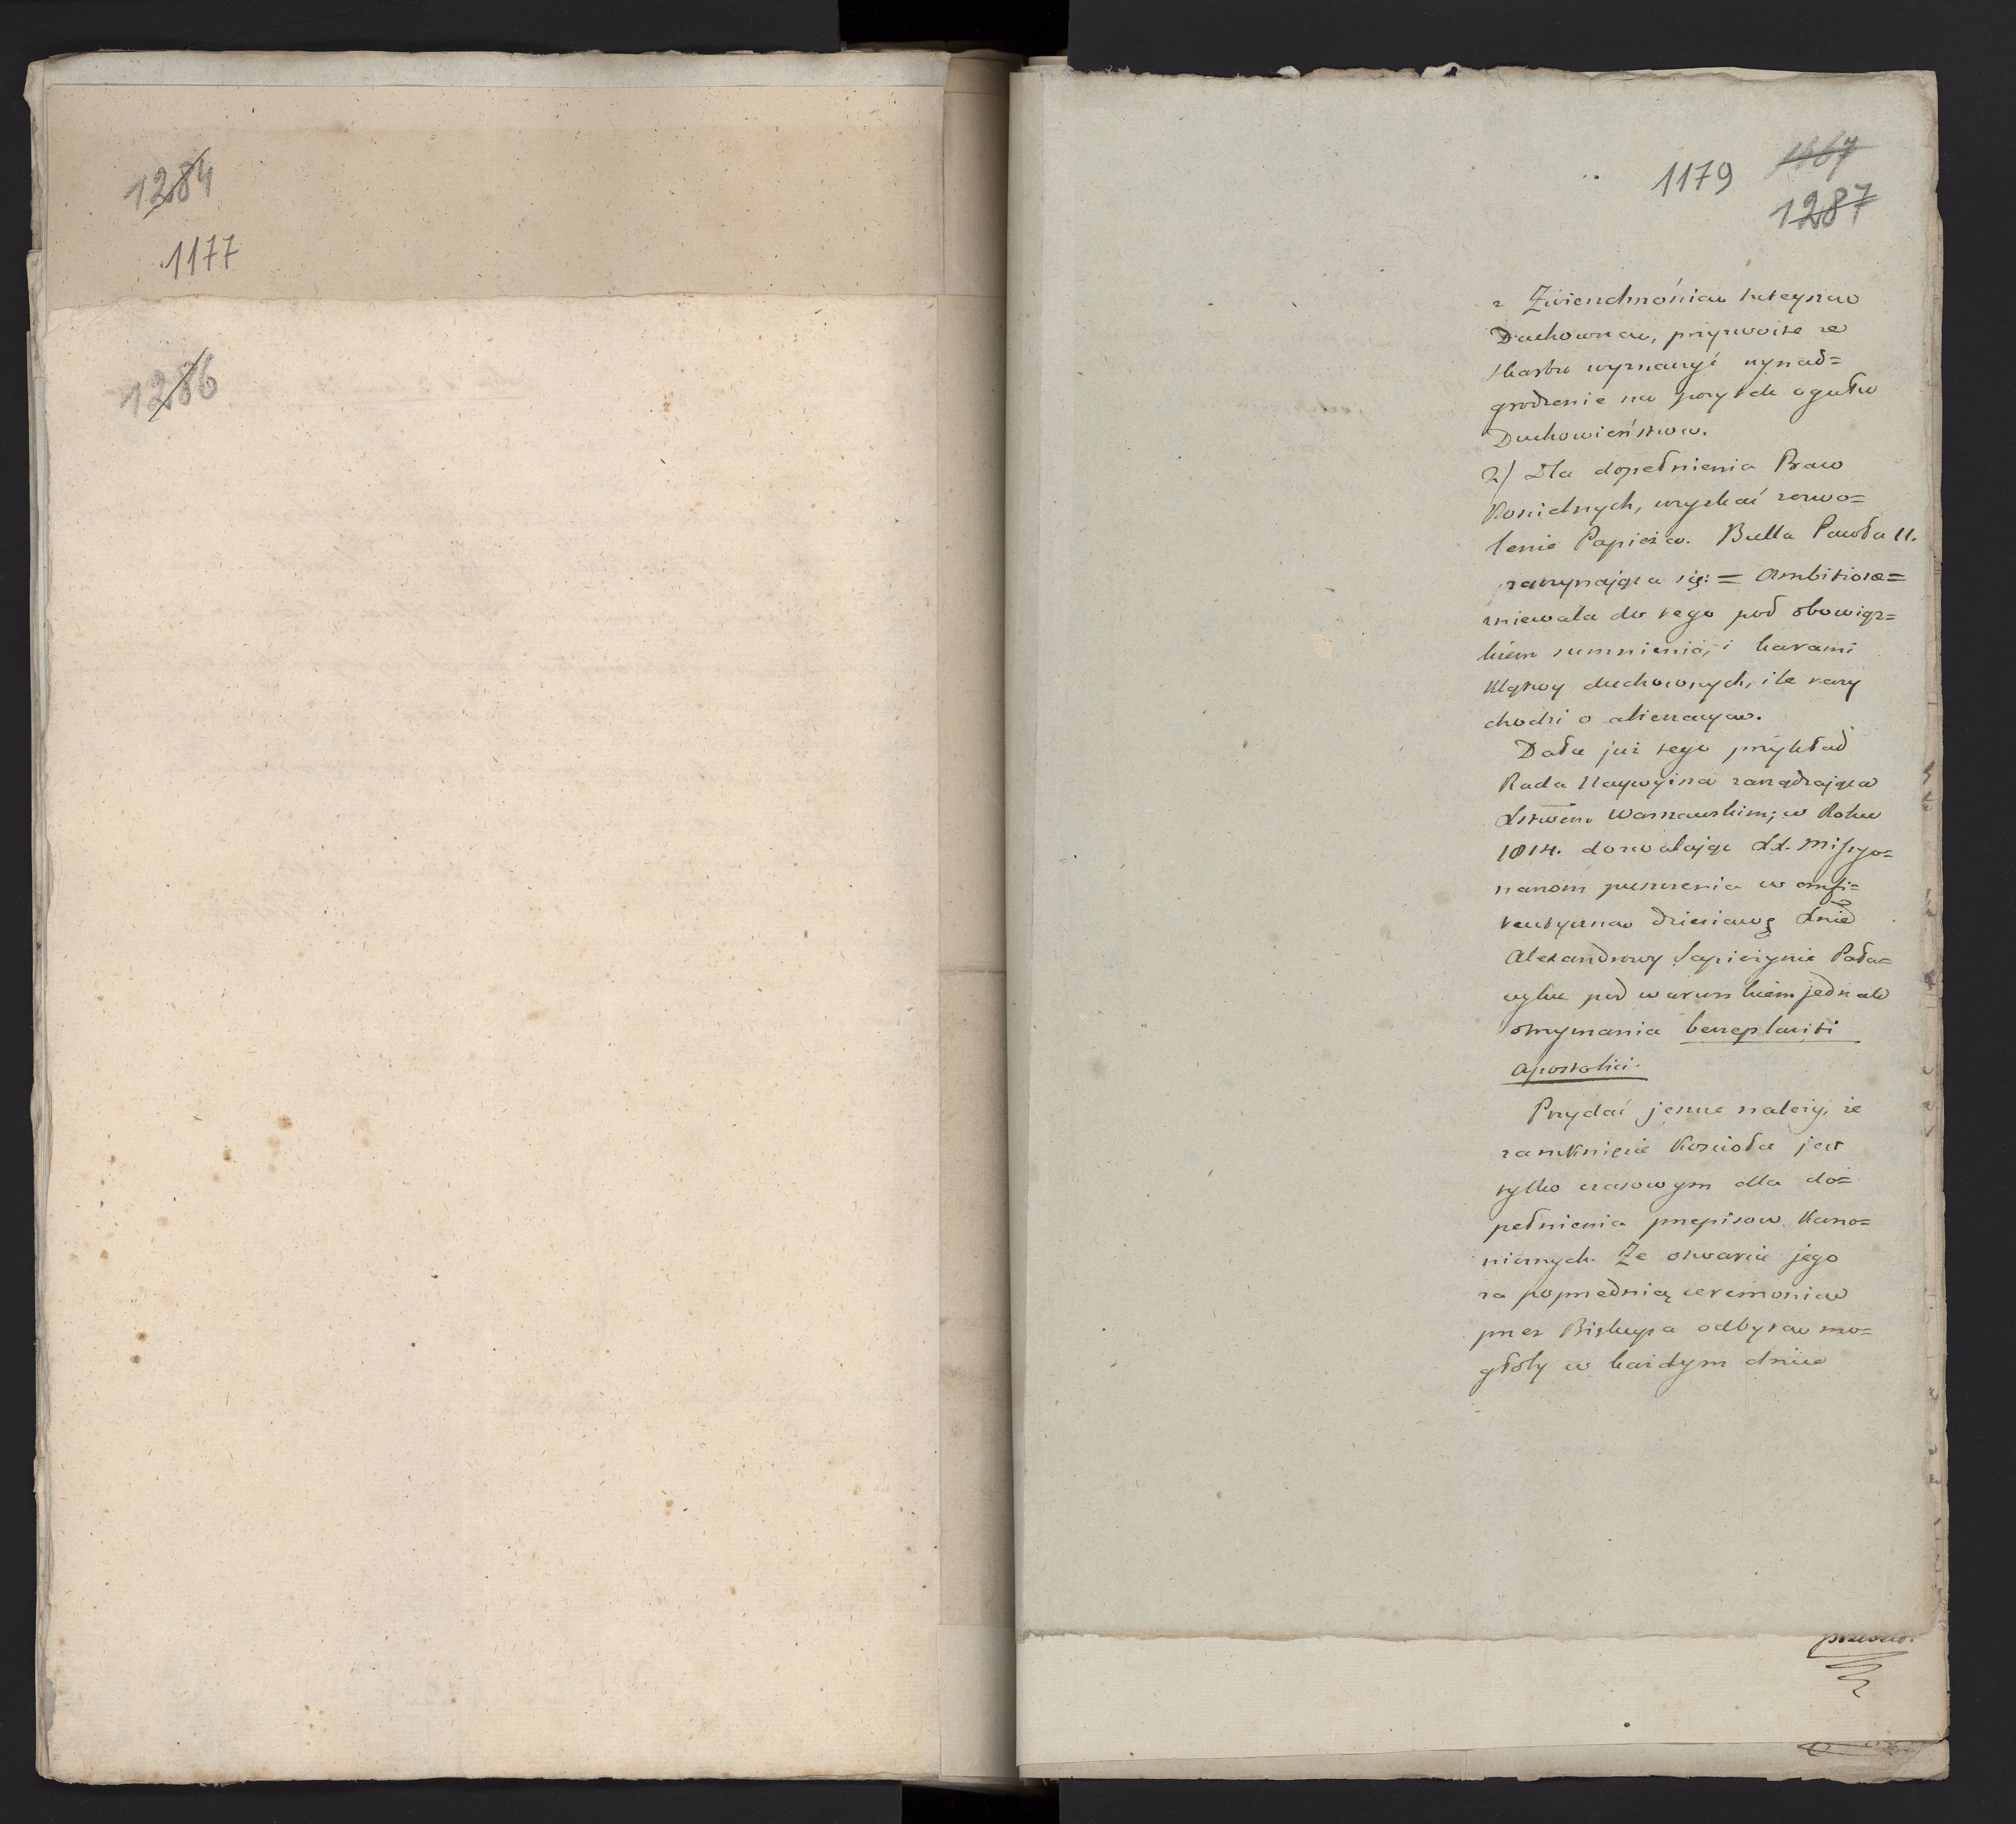 1284
1177
1286
1179
1287
z Zwierzchnościa tuteyszą
Duchowną, przyzwoite ze
skarbu wyznaczyć wynad=
grodzenie na pożytek ogułu
Duchowieństwa.
2) Dla dopełnienia Praw
Koscielnych, uzyskać zezwo=
lenie Papieża. Bulla Pawła II.
zaczynająca się: = Ambitiosæ =
zniewala do tego pod obowiąz=
kiem sumnienia, i karami
klątwy duchownych, ile razy
chodzi o alienacyą.
Dała już tego przykład
Rada Naywyższa rządząca
Xstwem Warszawskim; w Roku
1814. dozwalając XX. Missyo=
narzom puszczenia w emfi=
teutyczną dzierżawę Xnie
Alexandrowy Sapieżynie Pała=
cyku pod warunkiem jednak
otrzymania beneplaciti
Apostolici.
Przydać jeszcze należy, że
zamknięcie Kościoła jest
tylko czasowym dla do=
pełnienia przepisow Kano=
nicznych. Że otwarcie jego
za poprzednią ceremonią
przez Biskupa odbytą mo=
głoby w każdym dniu